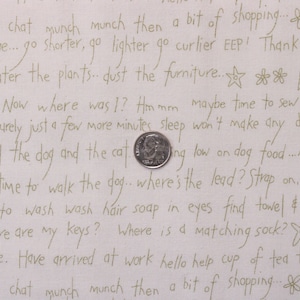 chat munch munch then a bit of shopping..
e... go shorter, go lighter go curlier EEP! Thank
ater the plants.. dust the furniture..
Now where was I? Hmmm maybe time to sew
urely just a few more minutes sleep won't make any d
the dog and the cat ng low on dog food....
time to walk the dog...where's the lead? Strap on
to wash wash hair soap in eyes find towel &
re are my keys? Where is a matching sock?
e.. Have arrived at work hello help cup of tea
chat munch munch then a bit of shopping..